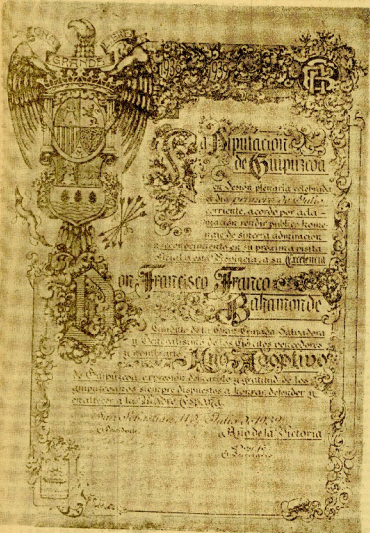 UNA GRANDE LIBRE
1936 1939
La Diputación
de Guipúzcoa
en sesión plenaria celebrada
el día primero de Julio
corriente, acordó por acla-
mación rendir público home-
naje de sincera admiración
y reconocimiento en su próxima visita
oficial a esta Provincia, a su Excelencia
Don Francisco Franco
Bahamonde
Caudillo de la Cruzada Salvadora
y Generalísimo de los Ejércitos vencedores
y nombrarle Hijo Adoptivo
de Guipúzcoa, expresión del cariño y gratitud de los
guipuzcoanos siempre dispuestos a honrar, defender y
enaltecer a la Madre España.
San Sebastián Julio 1939
Año de la Victoria